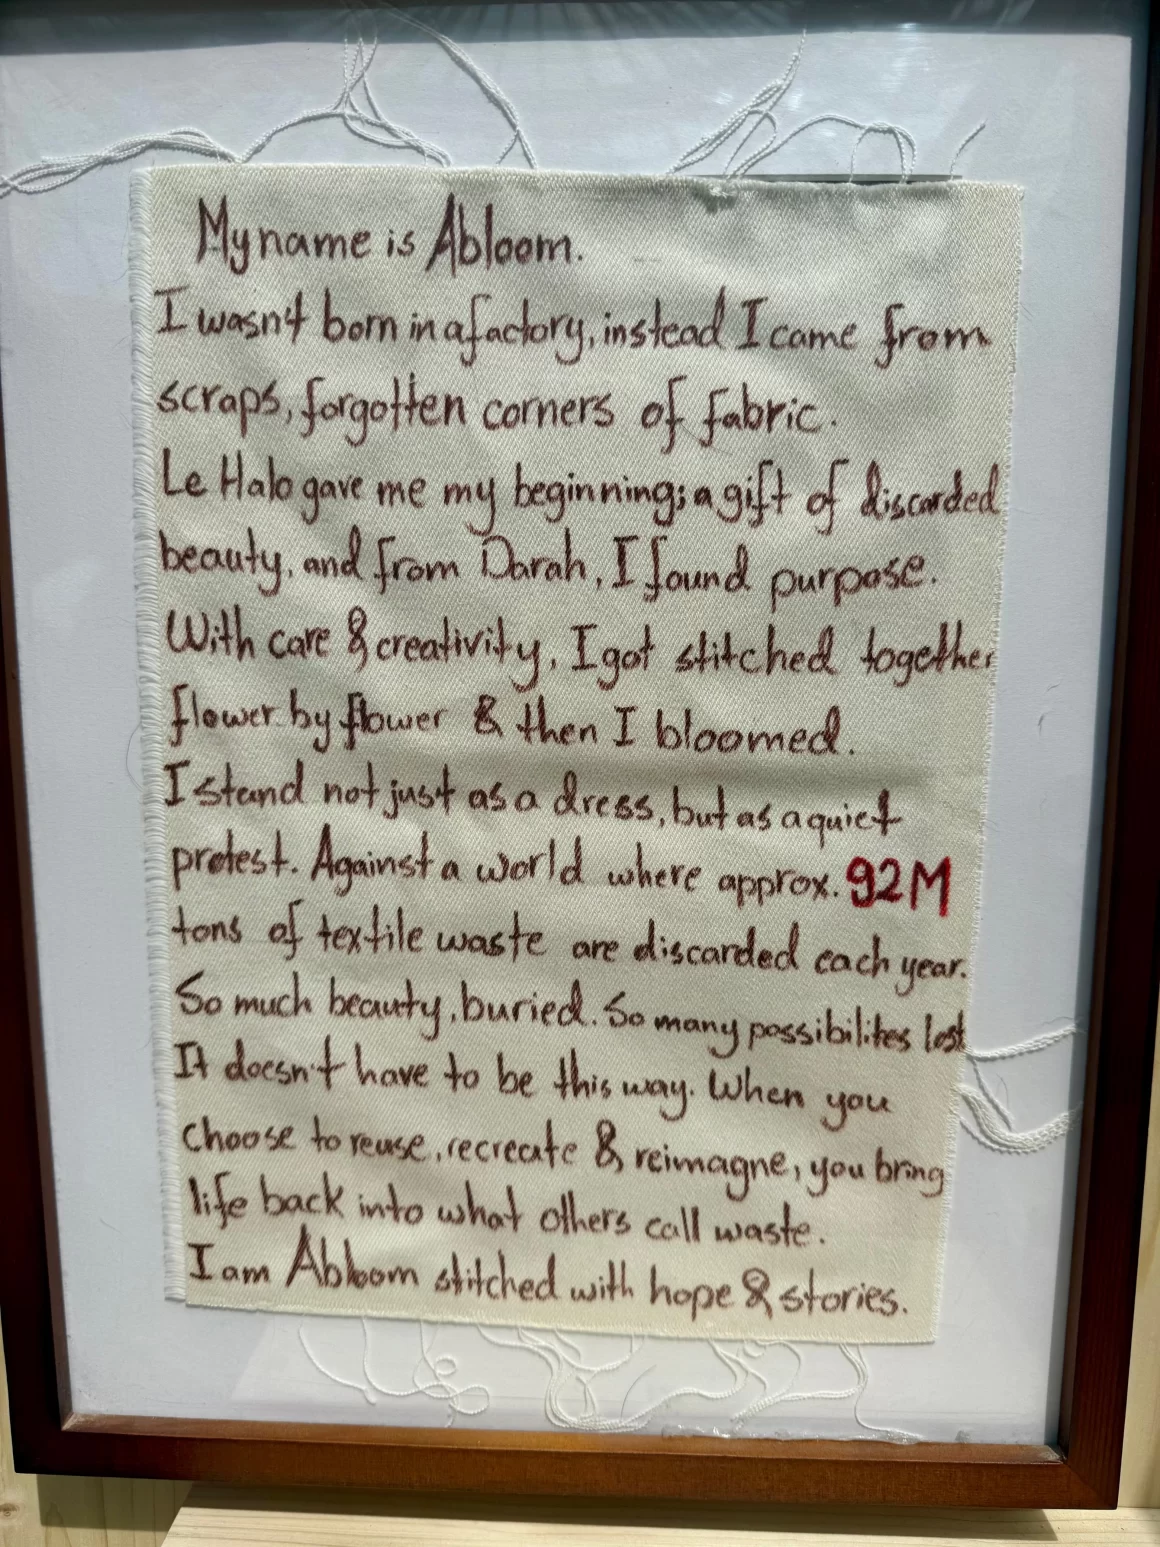 My name is Abloom.
I wasn't born in a factory, instead I came from
scraps, forgotten corners of fabric.
Le Halo gave me my beginning; a gift of discarded
beauty, and from Darah, I found purpose.
With care & creativity, I got stitched together
flower by flower & then I bloomed.
I stand not just as a dress, but as a quiet
protest. Against a world where approx. 92M
tons of textile waste are discarded each year.
So much beauty, buried. So many possibilites lost
It doesn't have to be this way. When you
choose to reuse, recreate & reimagne, you bring
life back into what others call waste.
I am Abloom stitched with hope & stories.